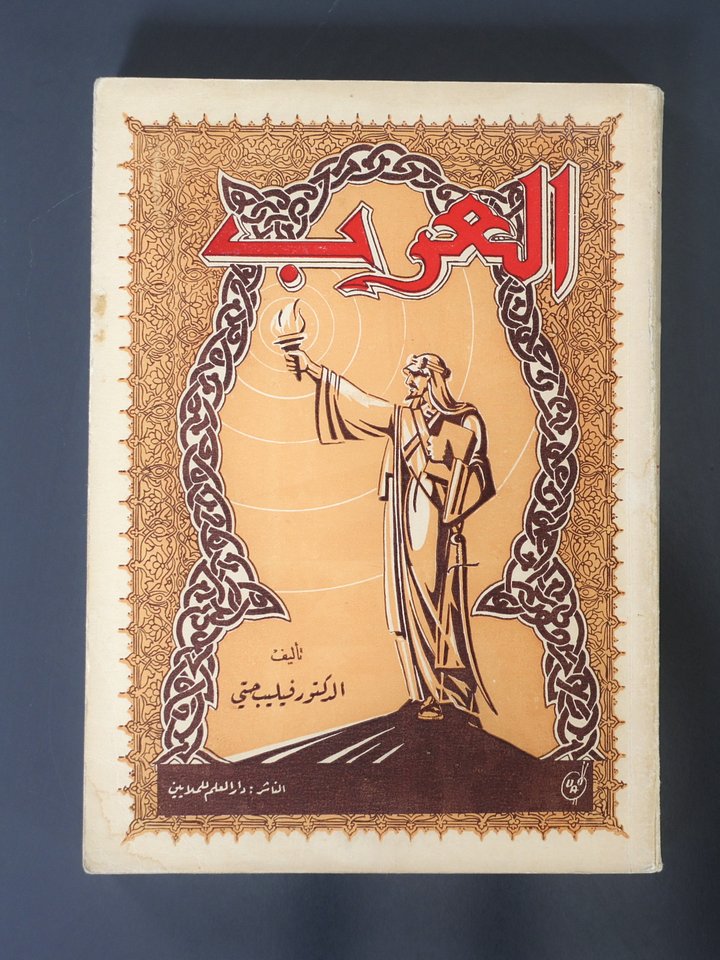 العرب
تأليف
الدكتور فيليب حتي
الناشر : دار العلم للملايين